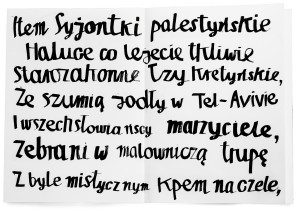 Item Syjontki palestyńskie
Haluce co lejecie tkliwie
Starozakonne łzy kretyńskie,
Że szumią jodły w Tel-Avivie
I wszechsłowiańscy marzyciele,
Zebrani w malowniczą trupę
Z byle mistycznym kpem na czele,